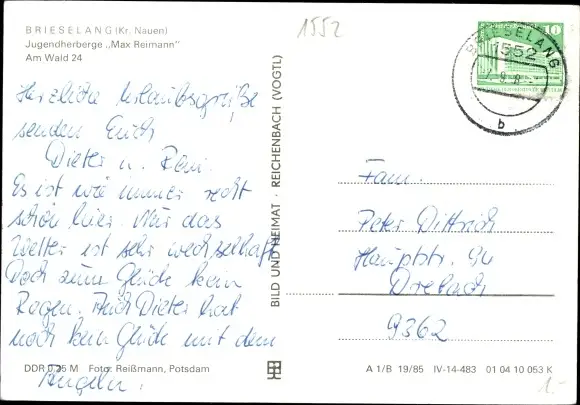 1552
BRIESELANG (Kr. Nauen)
Jugendherberge „Max Reimann"
Am Wald 24
Herzliche Urlaubsgrüße
senden Euch
Dieter u. Roni.
Es ist wie immer recht
schön hier. Nur das
Wetter ist sehr wechselhaft
Doch zum Glück kein
Regen. Auch Dieter hat
noch kein Glück mit dem
Angeln.
DDR 0,25 M Foto: Reißmann, Potsdam
BILD UND HEIMAT · REICHENBACH (VOGTL)
10
BRIESELANG
1552
b
Fam.
Peter Dittrich
Hauptstr. 94
Drebach
9362
A 1/B 19/85 IV-14-483 01 04 10 053 K
1.-